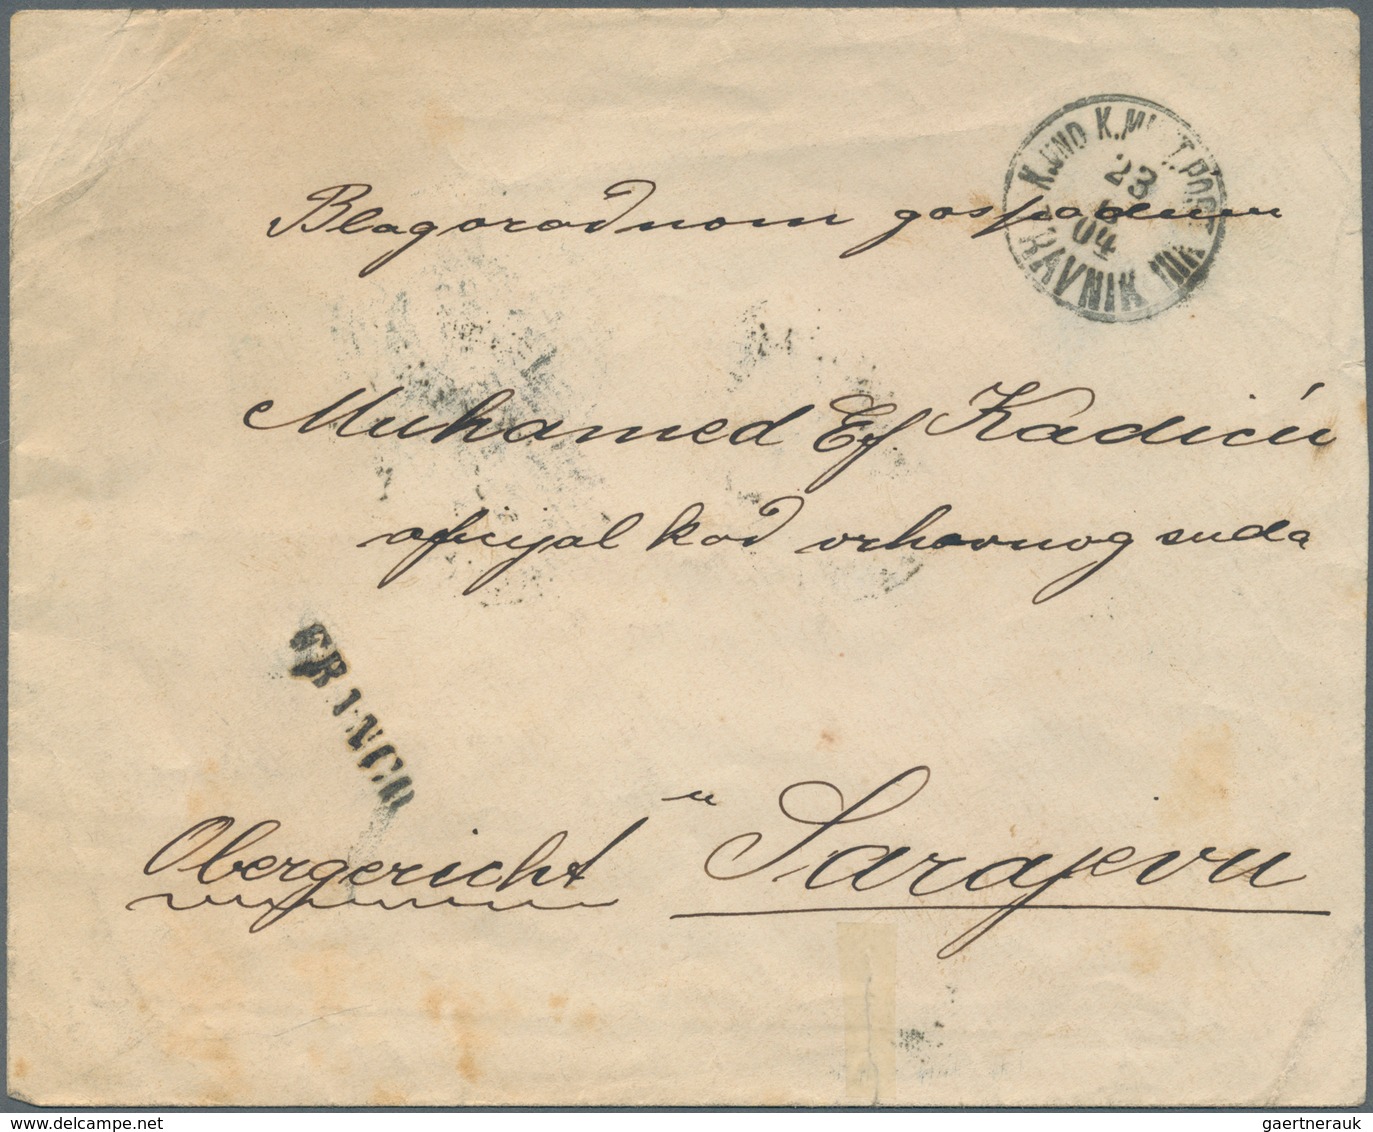 K. UND K. MILIT. POST
23
04
RAVNIK
Blagorodnom gospodinu
Muhamed Ef. Kadiću
oficijal kod vrhovnog suda
FRANCO
u
Obergericht Sarajevu
gaertnerauk